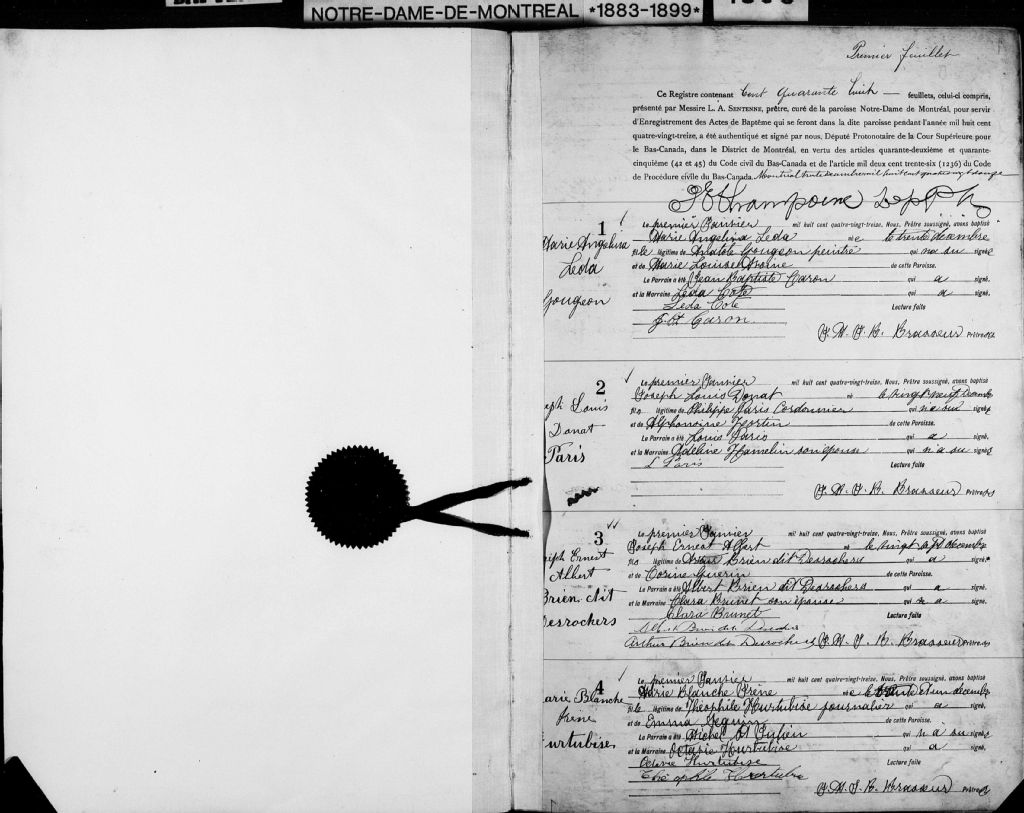 NOTRE-DAME-DE-MONTREAL *1883-1899*
Premier feuillet
Ce Registre contenant Cent quarante huit — feuillets, celui-ci compris,
présenté par Messire L. A. SENTENNE, prêtre, curé de la paroisse Notre-Dame de Montréal, pour servir
d'Enregistrement des Actes de Baptême qui se feront dans la dite paroisse pendant l'année mil huit cent
quatre-vingt-treize, a été authentiqué et signé par nous, Député Protonotaire de la Cour Supérieure pour
le Bas-Canada, dans le District de Montréal, en vertu des articles quarante-deuxième et quarante-
cinquième (42 et 45) du Code civil du Bas-Canada et de l'article mil deux cent trente-six (1236) du Code
de Procédure civile du Bas-Canada. Montréal trente decembre mil huit cent quatre vingt douze
1
Marie Angelina
Leda
Gougeon
Le premier Janvier mil huit cent quatre-vingt-treize, Nous, Prêtre soussigné, avons baptisé
Marie Angelina Leda née le trente décembre
fille légitime de Anatole Gougeon peintre qui n'a su signer
et de Marie Louise de cette Paroisse.
Le Parrain a été Jean Baptiste Caron qui a signé.
et la Marraine Leda Coté qui a signé.
Leda Coté Lecture faite
J. Bt Caron
J. M. J. B. Brasseur Prêtre
2
Joseph Louis
Donat
Paris
Le premier Janvier mil huit cent quatre-vingt-treize, Nous, Prêtre soussigné, avons baptisé
Joseph Louis Donat né le vingt neuf Décembre
fils légitime de Philippe Paris Cordonnier qui n'a su signer
et de Alphonsine Fortin de cette Paroisse.
Le Parrain a été Louis Paris qui a signé.
et la Marraine Adeline Hamelin son épouse qui n'a su signer
L Paris Lecture faite
J. M. J. B. Brasseur Prêtre
3
eph Ernest
Albert
Brien dit
Desrochers
Le premier Janvier mil huit cent quatre-vingt-treize, Nous, Prêtre soussigné, avons baptisé
Joseph Ernest Albert né le vingt sept décembre
fils légitime de Arthur Brien dit Desrochers qui a signé.
et de Cosine Guerin de cette Paroisse.
Le Parrain a été Albert Brien dit Desrochers qui a signé.
et la Marraine Clara Brunet son épouse qui a signé.
Clara Brunet Lecture faite
Albert Brien dit Desrochers
Arthur Brien dit Desrochers J. M. J. B. Brasseur Prêtre
4
arie Blanche
Irene
urtubise
Le premier Janvier mil huit cent quatre-vingt-treize, Nous, Prêtre soussigné, avons baptisé
Marie Blanche Irène née le trente et un décembre
fille légitime de Théophile Hurtubise journalier qui a signé.
et de Emma Seguin de cette Paroisse.
Le Parrain a été Michel St Julien qui n'a su signer
et la Marraine Octavie Hurtubise qui a signé.
Octavie Hurtubise Lecture faite
Théophile Hurtubise
J. M. J. B. Brasseur Prêtre